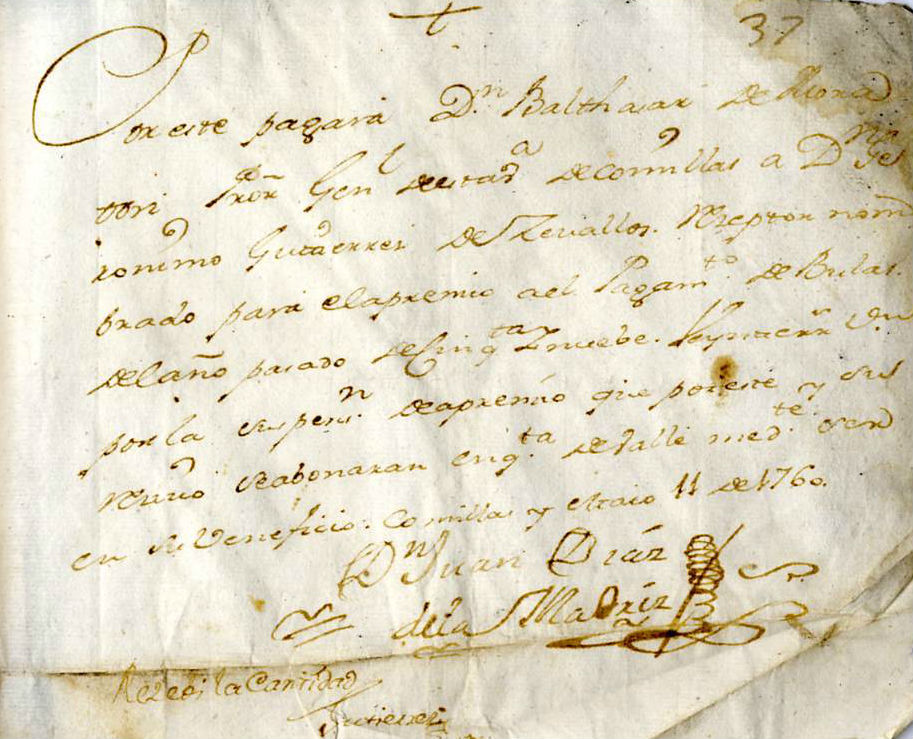 37
Por este pagará Dn Balthasar de Mora
tori Pror Genl de esta va de Comillas a Dn Ge
ronimo Gutierrez de Zevallos Rezeptor nom
brado para el apremio del Pagamto de Bulas
del año pasado de Cinqta y nuebe.
por la suspenn de apremio que por este y su
Reciuo se abonaran en qta de Valle medte ser
en su veneficio. Comillas y 11 de 1760.
Dn Juan Diaz
de la Madriz
Rezevi la Cantidad
Gutierrez